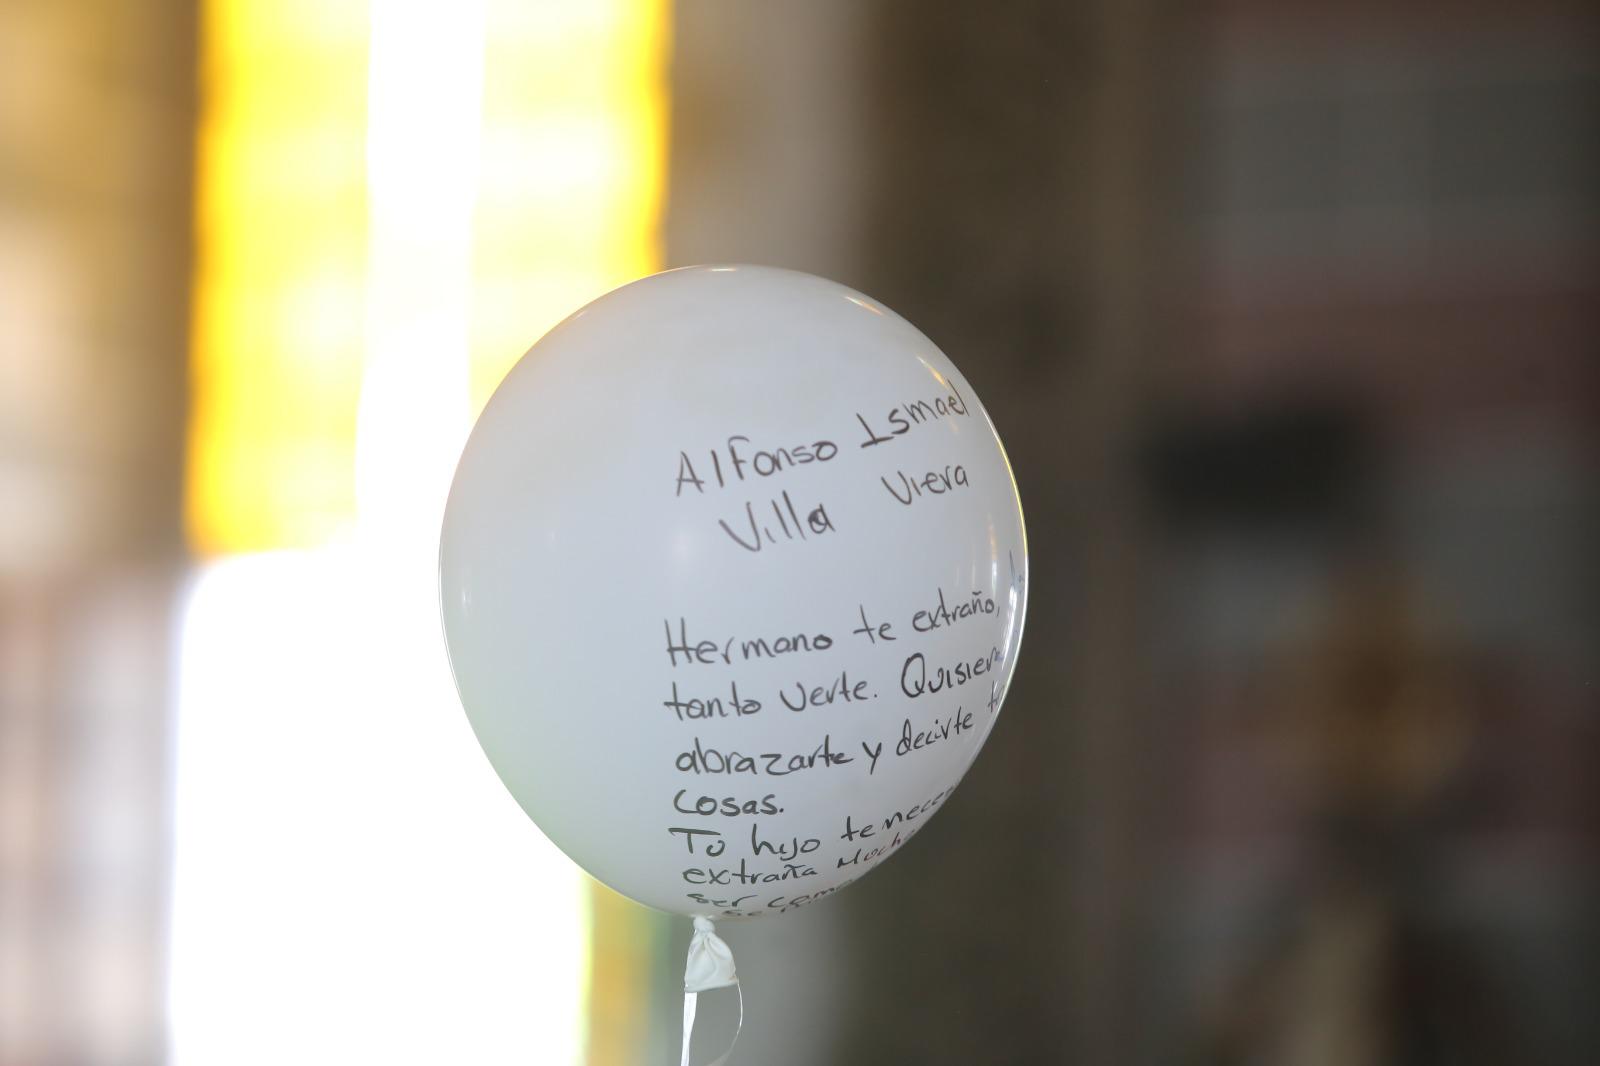 Alfonso Ismael
Villa Viera
Hermano te extraño,
tanto verte. Quisier
abrazarte y decirte
cosas.
Tu hijo te
extraña
ser